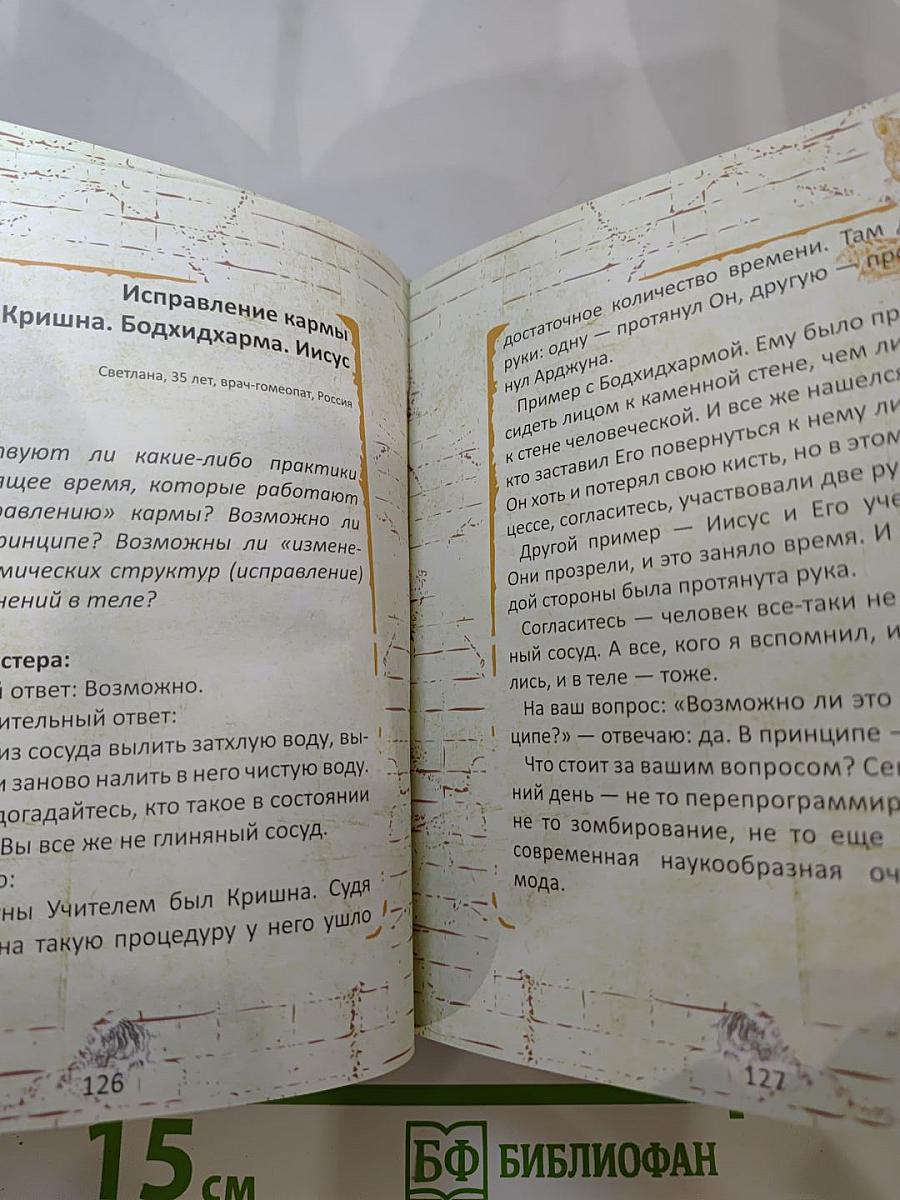 Исправление кармы
Кришна. Бодхидхарма. Иисус
Светлана, 35 лет, врач-гомеопат, Россия
ли какие-либо практики
время, которые работают
кармы? Возможно ли
принципе? Возможны ли «измене-
структур (исправление)
в теле?
ответ: Возможно.
ответ:
из сосуда вылить затхлую воду, вы-
и заново налить в него чистую воду.
догадайтесь, кто такое в состоянии
Вы все же не глиняный сосуд.
Учителем был Кришна. Судя
на такую процедуру у него ушло
126
достаточное количество времени. Там
руки: одну — протянул Он, другую — про
нул Арджуна.
Пример с Бодхидхармой. Ему было
сидеть лицом к каменной стене, чем
к стене человеческой. И все же нашелся
кто заставил Его повернуться к нему
Он хоть и потерял свою кисть, но в этом
цессе, согласитесь, участвовали две
Другой пример — Иисус и Его
Они прозрели, и это заняло время. И
дой стороны была протянута рука.
Согласитесь — человек все-таки не
ный сосуд. А все, кого я вспомнил,
лись, и в теле — тоже.
На ваш вопрос: «Возможно ли это
ципе?» — отвечаю: да. В принципе —
Что стоит за вашим вопросом?
ний день — не то перепрограммир
не то зомбирование, не то еще
современная наукообразная
мода.
127
15 см
БФ БИБЛИОФАН